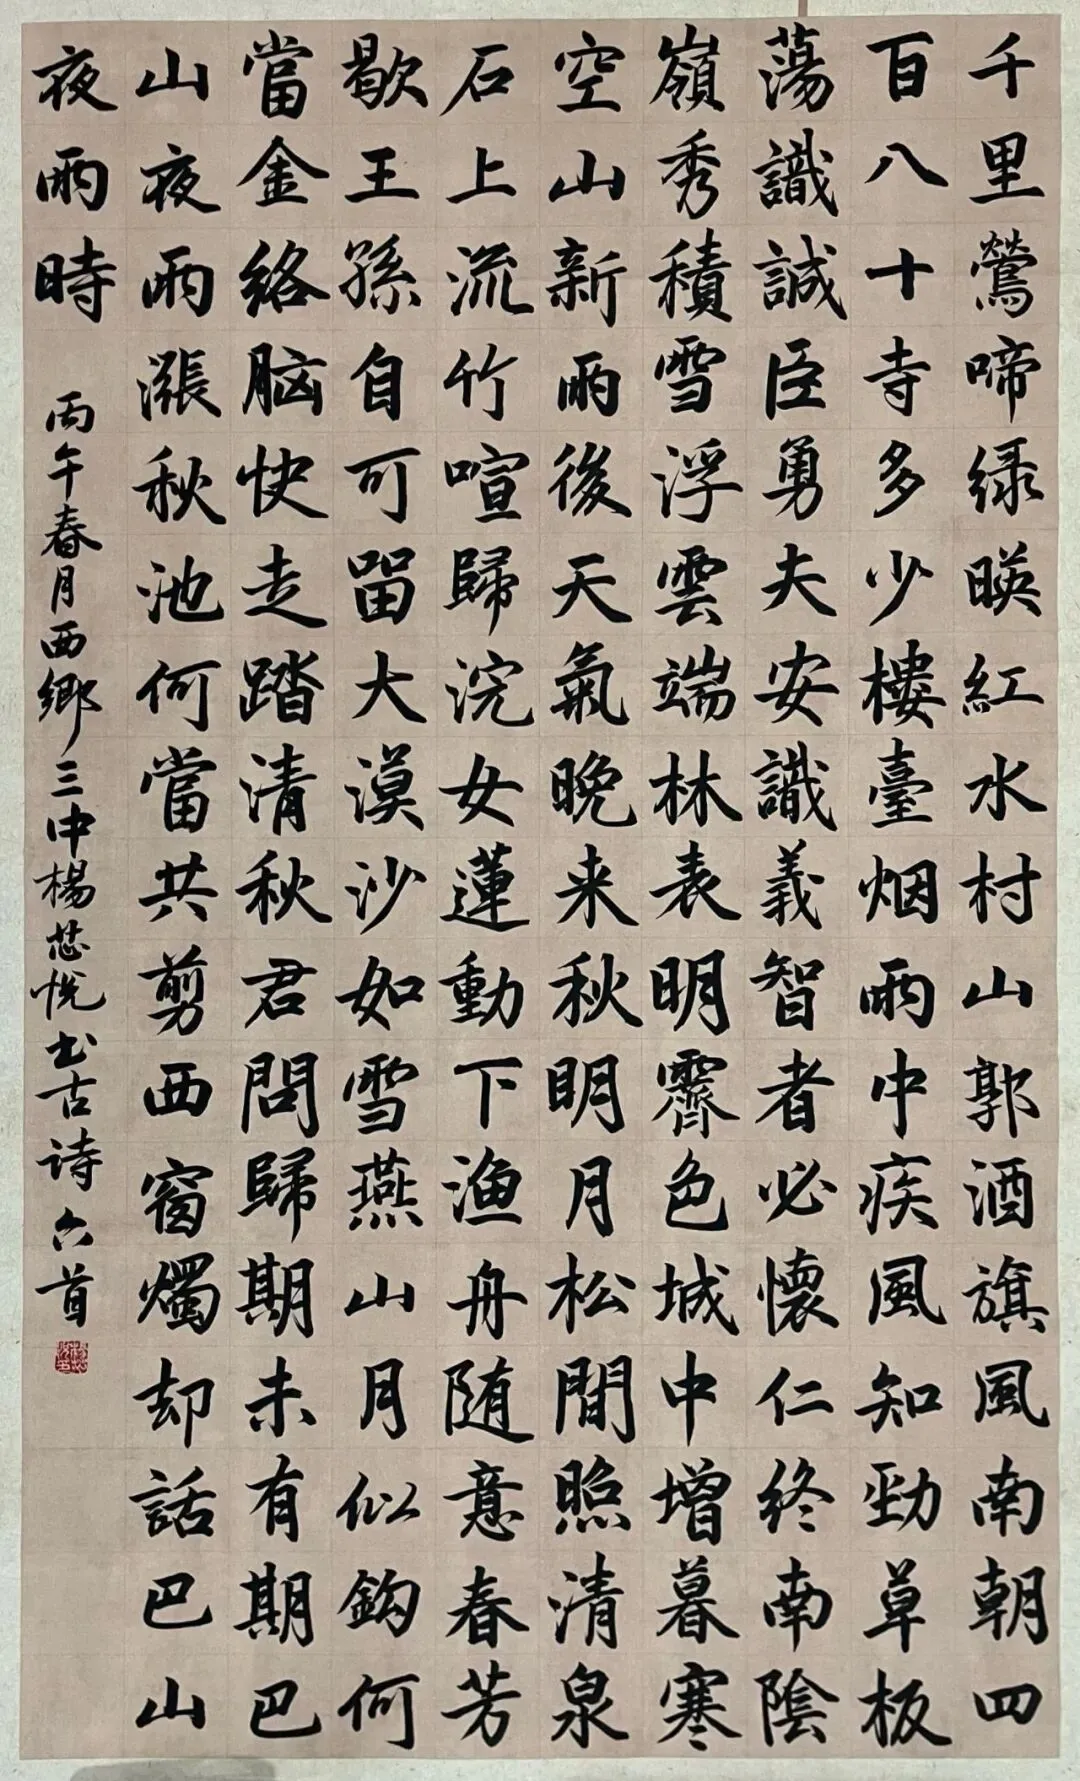 千里鶯啼绿暎紅水村山郭酒旗風南朝四
百八十寺多少樓臺烟雨中疾風知勁草板
蕩識誠臣勇夫安識義智者必懷仁终南陰
嶺秀積雪浮雲端林表明霽色城中增暮寒
空山新雨後天氣晚来秋明月松間照清泉
石上流竹喧歸浣女蓮動下渔舟随意春芳
歇王孫自可留大漠沙如雪燕山月似鈎何
當金絡脑快走踏清秋君問歸期未有期巴
山夜雨漲秋池何當共剪西窗燭却話巴山
夜雨時
丙午春月西鄉三中楊芯悅书古诗六首